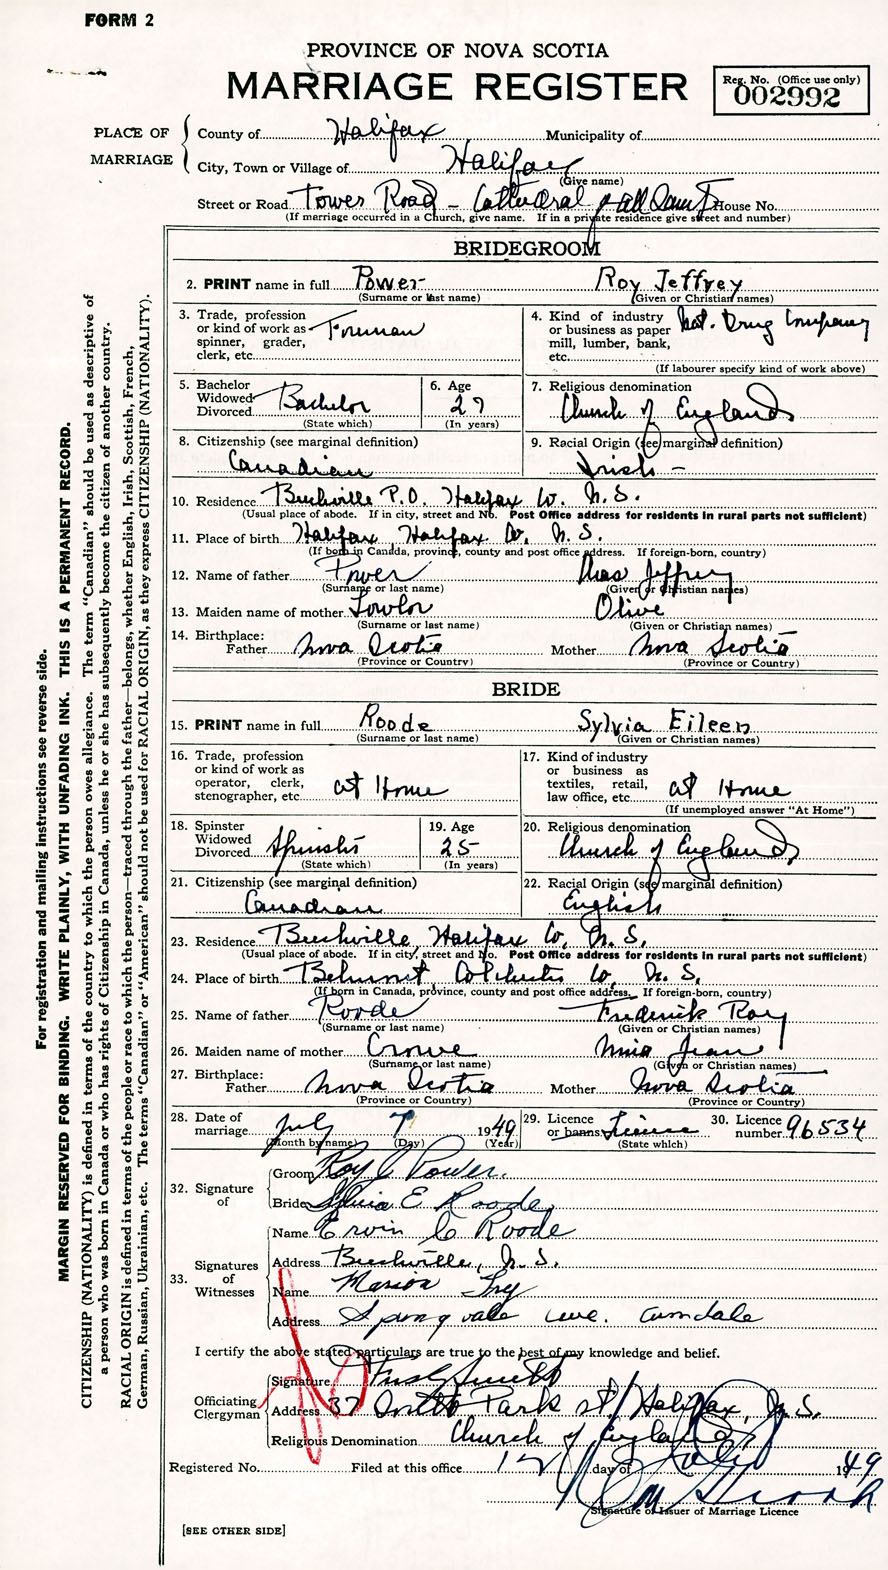 FORM 2
PROVINCE OF NOVA SCOTIA
MARRIAGE REGISTER
Reg. No. (Office use only)
002992
PLACE OF MARRIAGE
County of Halifax Municipality of
City, Town or Village of Halifax
(Give name)
Street or Road Tower Road – Cathedral of All Saints House No.
(If marriage occurred in a Church, give name. If in a private residence give street and number)
BRIDEGROOM
2. PRINT name in full Power Roy Jeffrey
(Surname or last name) (Given or Christian names)
3. Trade, profession or kind of work as spinner, grader, clerk, etc. Foreman
4. Kind of industry or business as paper mill, lumber, bank, etc. Nat. Drug Company
(If labourer specify kind of work above)
5. Bachelor Widowed Divorced Bachelor
(State which)
6. Age 27
(In years)
7. Religious denomination
Church of England
8. Citizenship (see marginal definition)
Canadian
9. Racial Origin (see marginal definition)
Irish –
10. Residence Beechville P.O. Halifax Co. N.S.
(Usual place of abode. If in city, street and No. Post Office address for residents in rural parts not sufficient)
11. Place of birth Halifax, Halifax Co. N.S.
(If born in Canada, province, county and post office address. If foreign-born, country)
12. Name of father Power Jeffrey
(Surname or last name) (Given or Christian names)
13. Maiden name of mother Lowlor Olive
(Surname or last name) (Given or Christian names)
14. Birthplace:
Father Nova Scotia Mother Nova Scotia
(Province or Country) (Province or Country)
BRIDE
15. PRINT name in full Roode Sylvia Eileen
(Surname or last name) (Given or Christian names)
16. Trade, profession or kind of work as operator, clerk, stenographer, etc. at Home
17. Kind of industry or business as textiles, retail, law office, etc. at Home
(If unemployed answer "At Home")
18. Spinster Widowed Divorced Spinster
(State which)
19. Age 25
(In years)
20. Religious denomination
Church of England
21. Citizenship (see marginal definition)
Canadian
22. Racial Origin (see marginal definition)
English
23. Residence Beechville, Halifax Co, N.S.
(Usual place of abode. If in city, street and No. Post Office address for residents in rural parts not sufficient)
24. Place of birth Belmont, Colchester Co, N.S.
(If born in Canada, province, county and post office address. If foreign-born, country)
25. Name of father Roode Frederick Roy
(Surname or last name) (Given or Christian names)
26. Maiden name of mother Crowe Jean
(Surname or last name) (Given or Christian names)
27. Birthplace:
Father Nova Scotia Mother Nova Scotia
(Province or Country) (Province or Country)
28. Date of marriage July 7 1949
(Month by name) (Day) (Year)
29. Licence or banns Licence
(State which)
30. Licence number 96534
32. Signature of
Groom Roy J Power.
Bride Sylvia E Roode
33. Signatures of Witnesses
Name Ervin C Roode
Address Beechville, N.S.
Name Marion
Address Springvale Ave. Armdale
I certify the above stated particulars are true to the best of my knowledge and belief.
Officiating Clergyman
Signature
Address 37 South Park st, Halifax, N.S.
Religious Denomination Church of England
Registered No. Filed at this office 12 day of July 1949
Signature of Issuer of Marriage Licence
[SEE OTHER SIDE]
For registration and mailing instructions see reverse side.
MARGIN RESERVED FOR BINDING. WRITE PLAINLY, WITH UNFADING INK. THIS IS A PERMANENT RECORD.
CITIZENSHIP (NATIONALITY) is defined in terms of the country to which the person owes allegiance. The term "Canadian" should be used as descriptive of
a person who was born in Canada or who has rights of Citizenship in Canada, unless he or she has subsequently become the citizen of another country.
RACIAL ORIGIN is defined in terms of the people or race to which the person—traced through the father—belongs, whether English, Irish, Scottish, French,
German, Russian, Ukrainian, etc. The terms "Canadian" or "American" should not be used for RACIAL ORIGIN, as they express CITIZENSHIP (NATIONALITY).